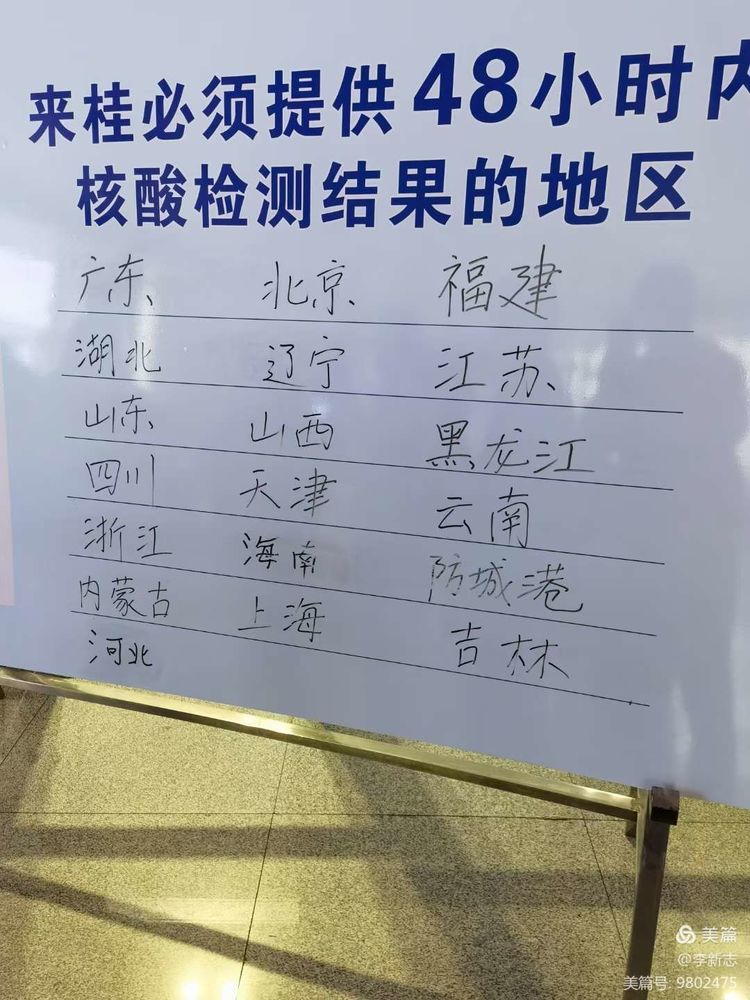 来桂必须提供48小时内
核酸检测结果的地区
广东 北京 福建
湖北 辽宁 江苏
山东 山西 黑龙江
四川 天津 云南
浙江 海南 防城港
内蒙古 上海 吉林
河北
美篇
@李新志
美篇号: 9802475